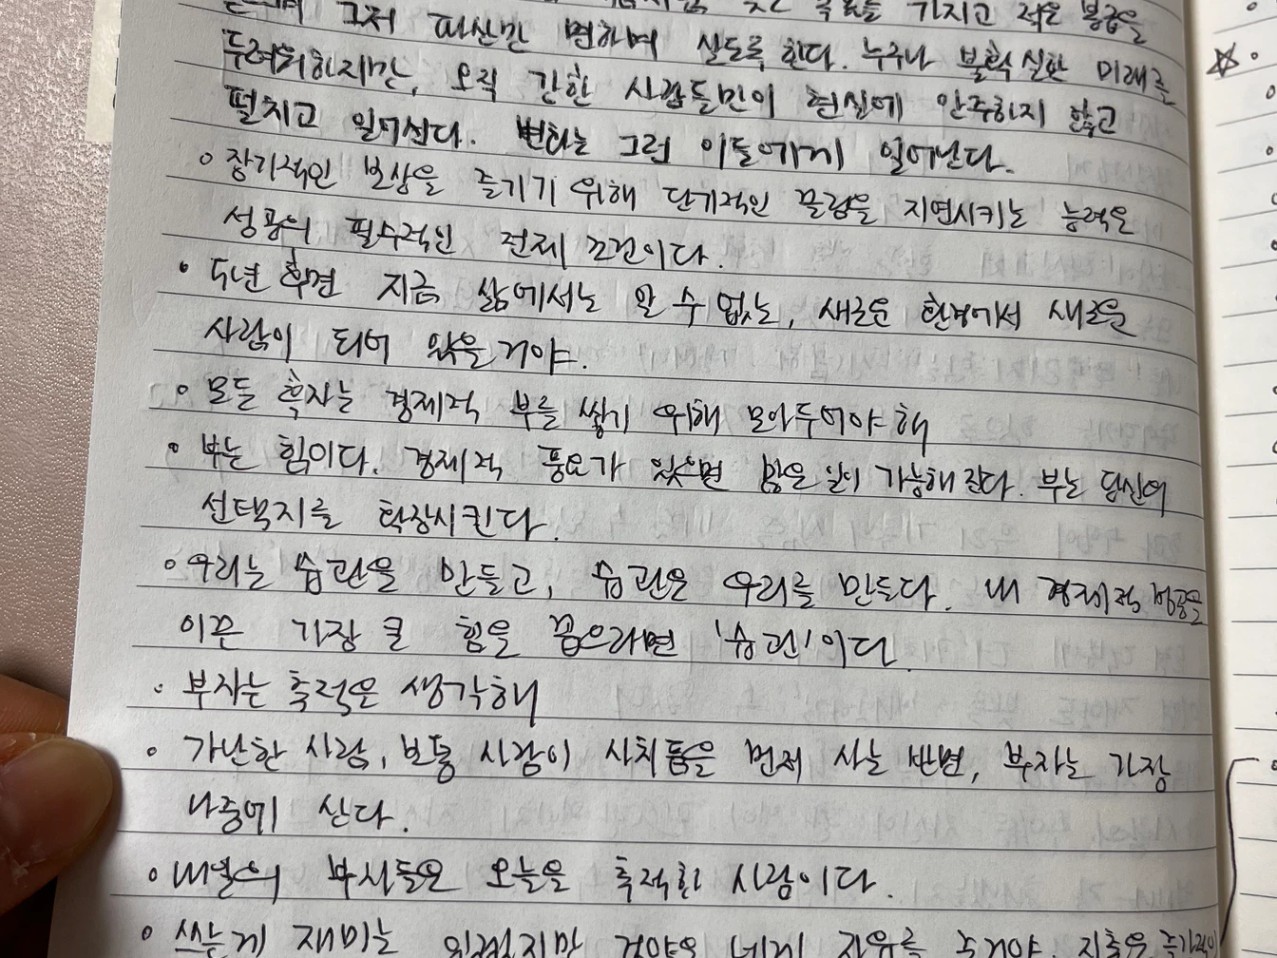 그저 파산만 면하며 살도록 한다. 누구나 불확실한 미래를
두려워하지만, 오직 강한 사람들만이 현실에 안주하지 않고
떨치고 일어선다. 변화는 그런 이들에게 일어난다.
◦ 장기적인 보상을 즐기기 위해 단기적인 끌림을 지연시키는 능력은
성공의 필수적인 전제 조건이다.
• 5년 후면 지금 삶에서는 알 수 없는, 새로운 환경에서 새로운
사람이 되어 있을거야.
◦ 모든 흑자는 경제적 부를 쌓기 위해 모아두어야 해
◦ 부는 힘이다. 경제적 풍요가 있으면 많은 일이 가능해진다. 부는 당신의
선택지를 확장시킨다.
◦ 우리는 습관을 만들고, 습관은 우리를 만든다. 내 경제적 성공을
이룬 가장 큰 힘을 꼽으라면 '습관'이다.
• 부자는 축적을 생각해
• 가난한 사람, 보통 사람이 사치품을 먼저 사는 반면, 부자는 가장
나중에 산다.
◦ 내일의 부자들은 오늘을 축적한 사람이다.
◦ 쓰는게 재미는 있겠지만